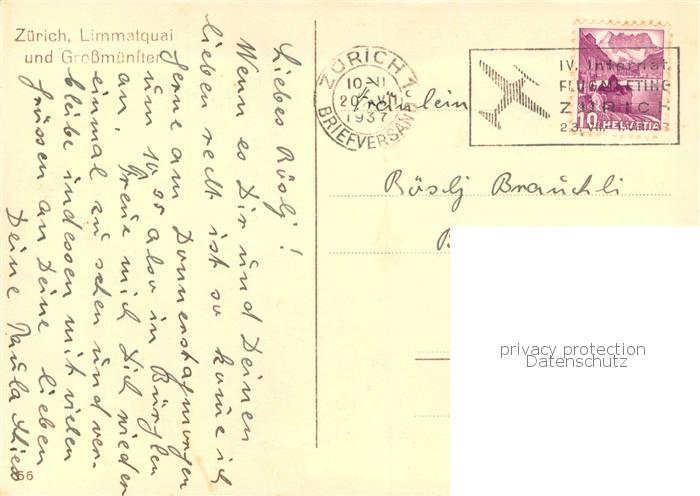 Zürich, Limmatquai
und Großmünster
Liebes Rösly!
Wenn es Dir und Deinen
lieben recht ist so komme ich
gerne am Donnerstagmorgen
um 10 also in Bürglen
an. Freue mich Dich wieder
einmal zu sehen und ver-
bleibe indessen mit vielen
Grüssen an Deine lieben
Deine Paula
66
ZÜRICH 1
10-11
20. VII.
1937
BRIEFVERSAND
IV. Internat.
FLUGMEETING
ZÜRICH
23. VII.
10 HELVETIA
Fräulein
Rösly Brauchli
B
privacy protection
Datenschutz